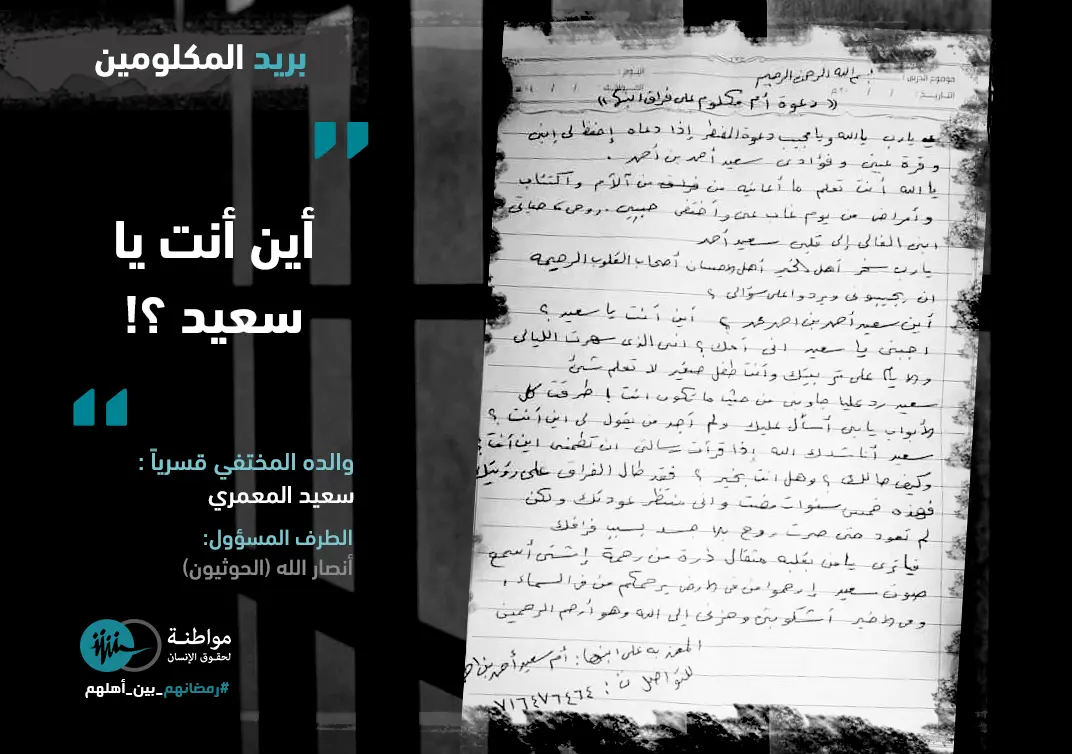 بريد المكلومين
أين أنت يا
سعيد ؟!
والده المختفي قسرياً :
سعيد المعمري
الطرف المسؤول:
أنصار الله (الحوثيون)
مواطنة
لحقوق الإنسان
#رمضانهم_بين_أهلهم
موضوع الدرس : بسم الله الرحمن الرحيم اليوم :
التاريخ : / / / /
(( دعوة أم مكلوم على فراق ابنها ))
يارب يا الله ويا مجيب دعوة المضطر إذا دعاه إحفظ لي إبني
وقرة عيني وفؤادي سعيد أحمد بن أحمد .
يا الله أنت تعلم ما أعانيه من فراقه من آلآم وآكتئاب
وأمراض من يوم غاب عني وأختفى حبيبي . روحي حياتي
ابني الغالي إلى قلبي سعيد أحمد
يارب سخر أهل الخير أهل الاحسان أصحاب القلوب الرحيمه
ان يجيبوني ويردوا على سؤالي ؟
أين سعيد أحمد بن احمد محمد ؟ أين أنت يا سعيد ؟
اجبني يا سعيد اني أمك ؟ انني الذي سهرت الليالي
والايام على تربيتك وأنت طفل صغير لا تعلم شيئ
سعيد رد عليا جاوبني من حيثما تكون انت ! طرقت كل
الأبواب يابني أسأل عليك ولم أجد من يقول لي اين أنت ؟
سعيد أناشدك الله إذا قرأت رسالتي ان تطمني اين أنت ؟
وكيف حالك ؟ وهل انت بخير ؟ فقد طال الفراق على رؤيتك
فهذه خمس سنوات مضت واني منتظر عودتك ولكن
لم تعود حتى صرت روح بلا جسد بسبب فراقك
فياترى يامن بقلبه مثقال ذرة من رحمة إشتي أسمع
صوت سعيد إرحموا من في الارض يرحمكم من في السماء .
وفي الاخير أشكو بثي وحزني إلى الله وهو أرحم الراحمين
المعذبه على ابنها : أم سعيد أحمد بن
للتواصل ت : ٧١٦٤٧٦٤٦٤